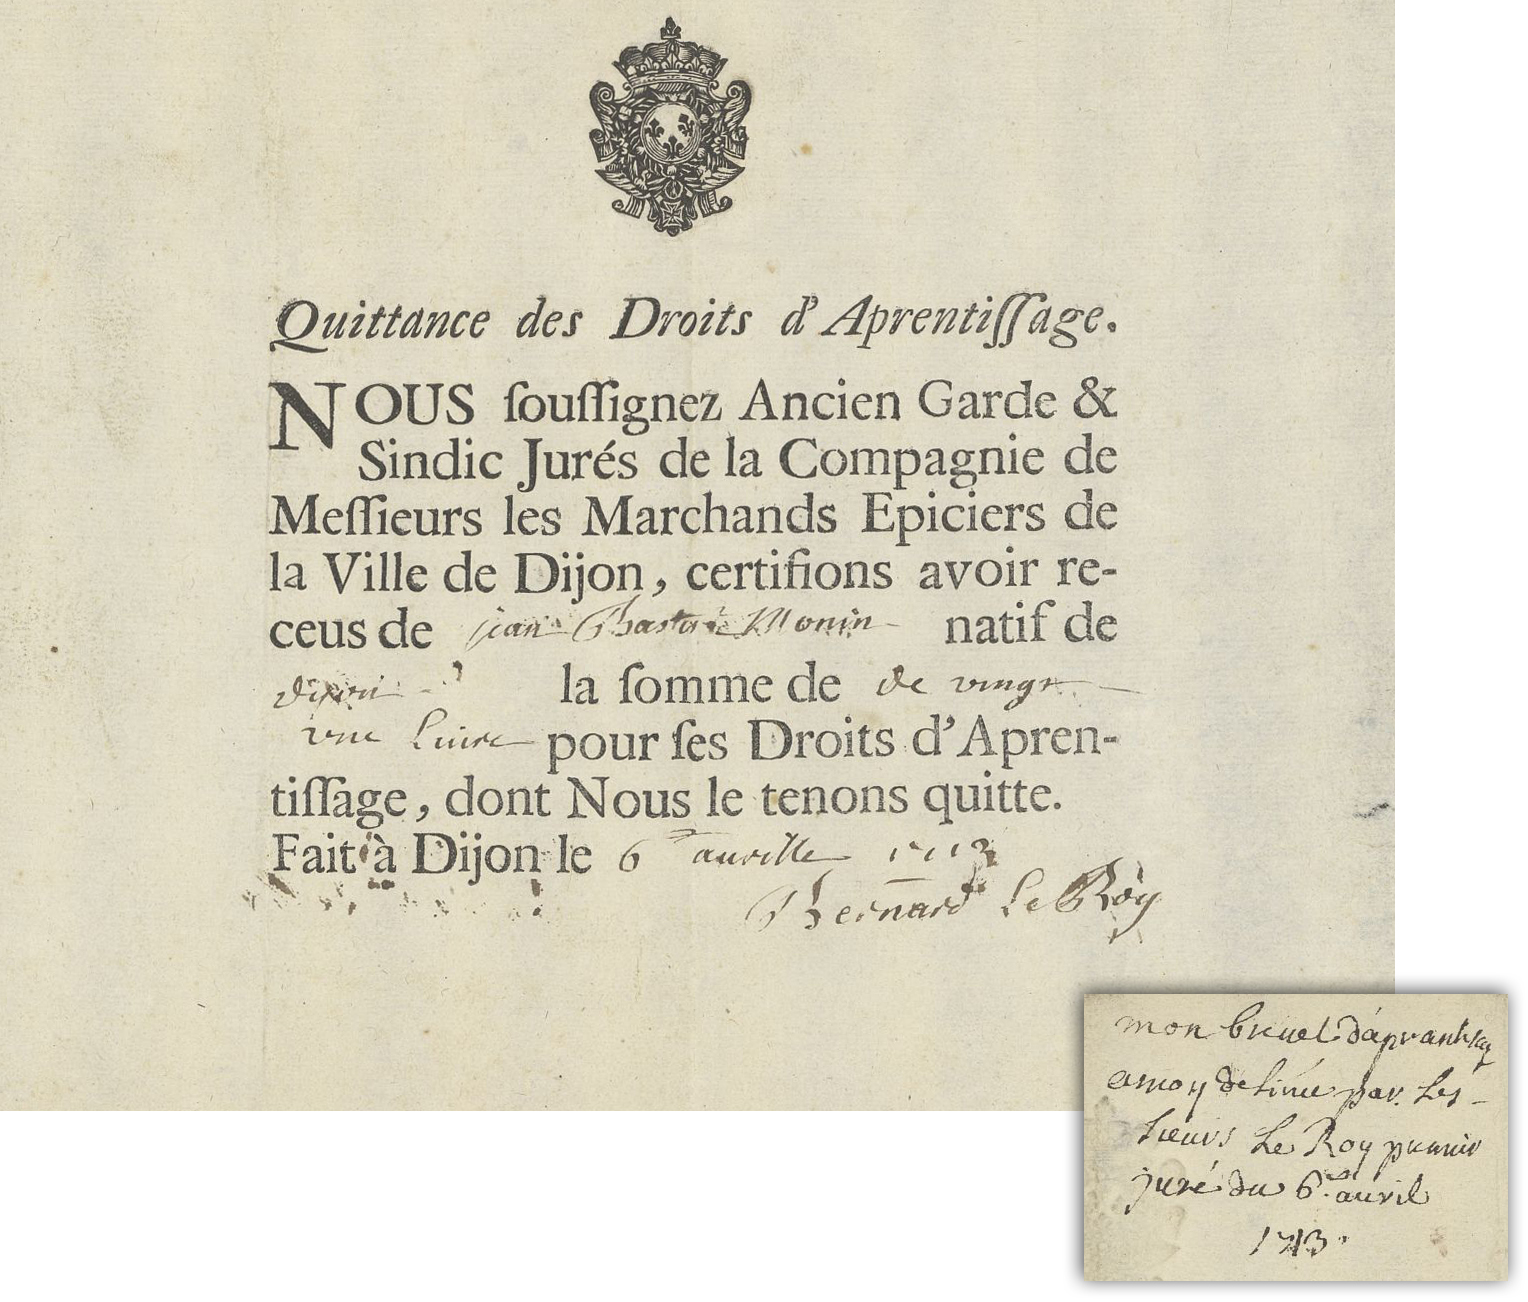 Quittance des Droits d'Aprentiſſage.
NOUS ſouſſignez Ancien Garde &
Sindic Jurés de la Compagnie de
Meſſieurs les Marchands Epiciers de
la Ville de Dijon, certifions avoir re-
ceus de jean Monin natif de
dijon la ſomme de de vingt
une livre pour ſes Droits d'Apren-
tiſſage, dont Nous le tenons quitte.
Fait à Dijon le 6 avrille 1713
Bernard Le Roy
mon brevet
a moy delivré par les
sieurs Le Roy premier
juré du 6 avril
1713.